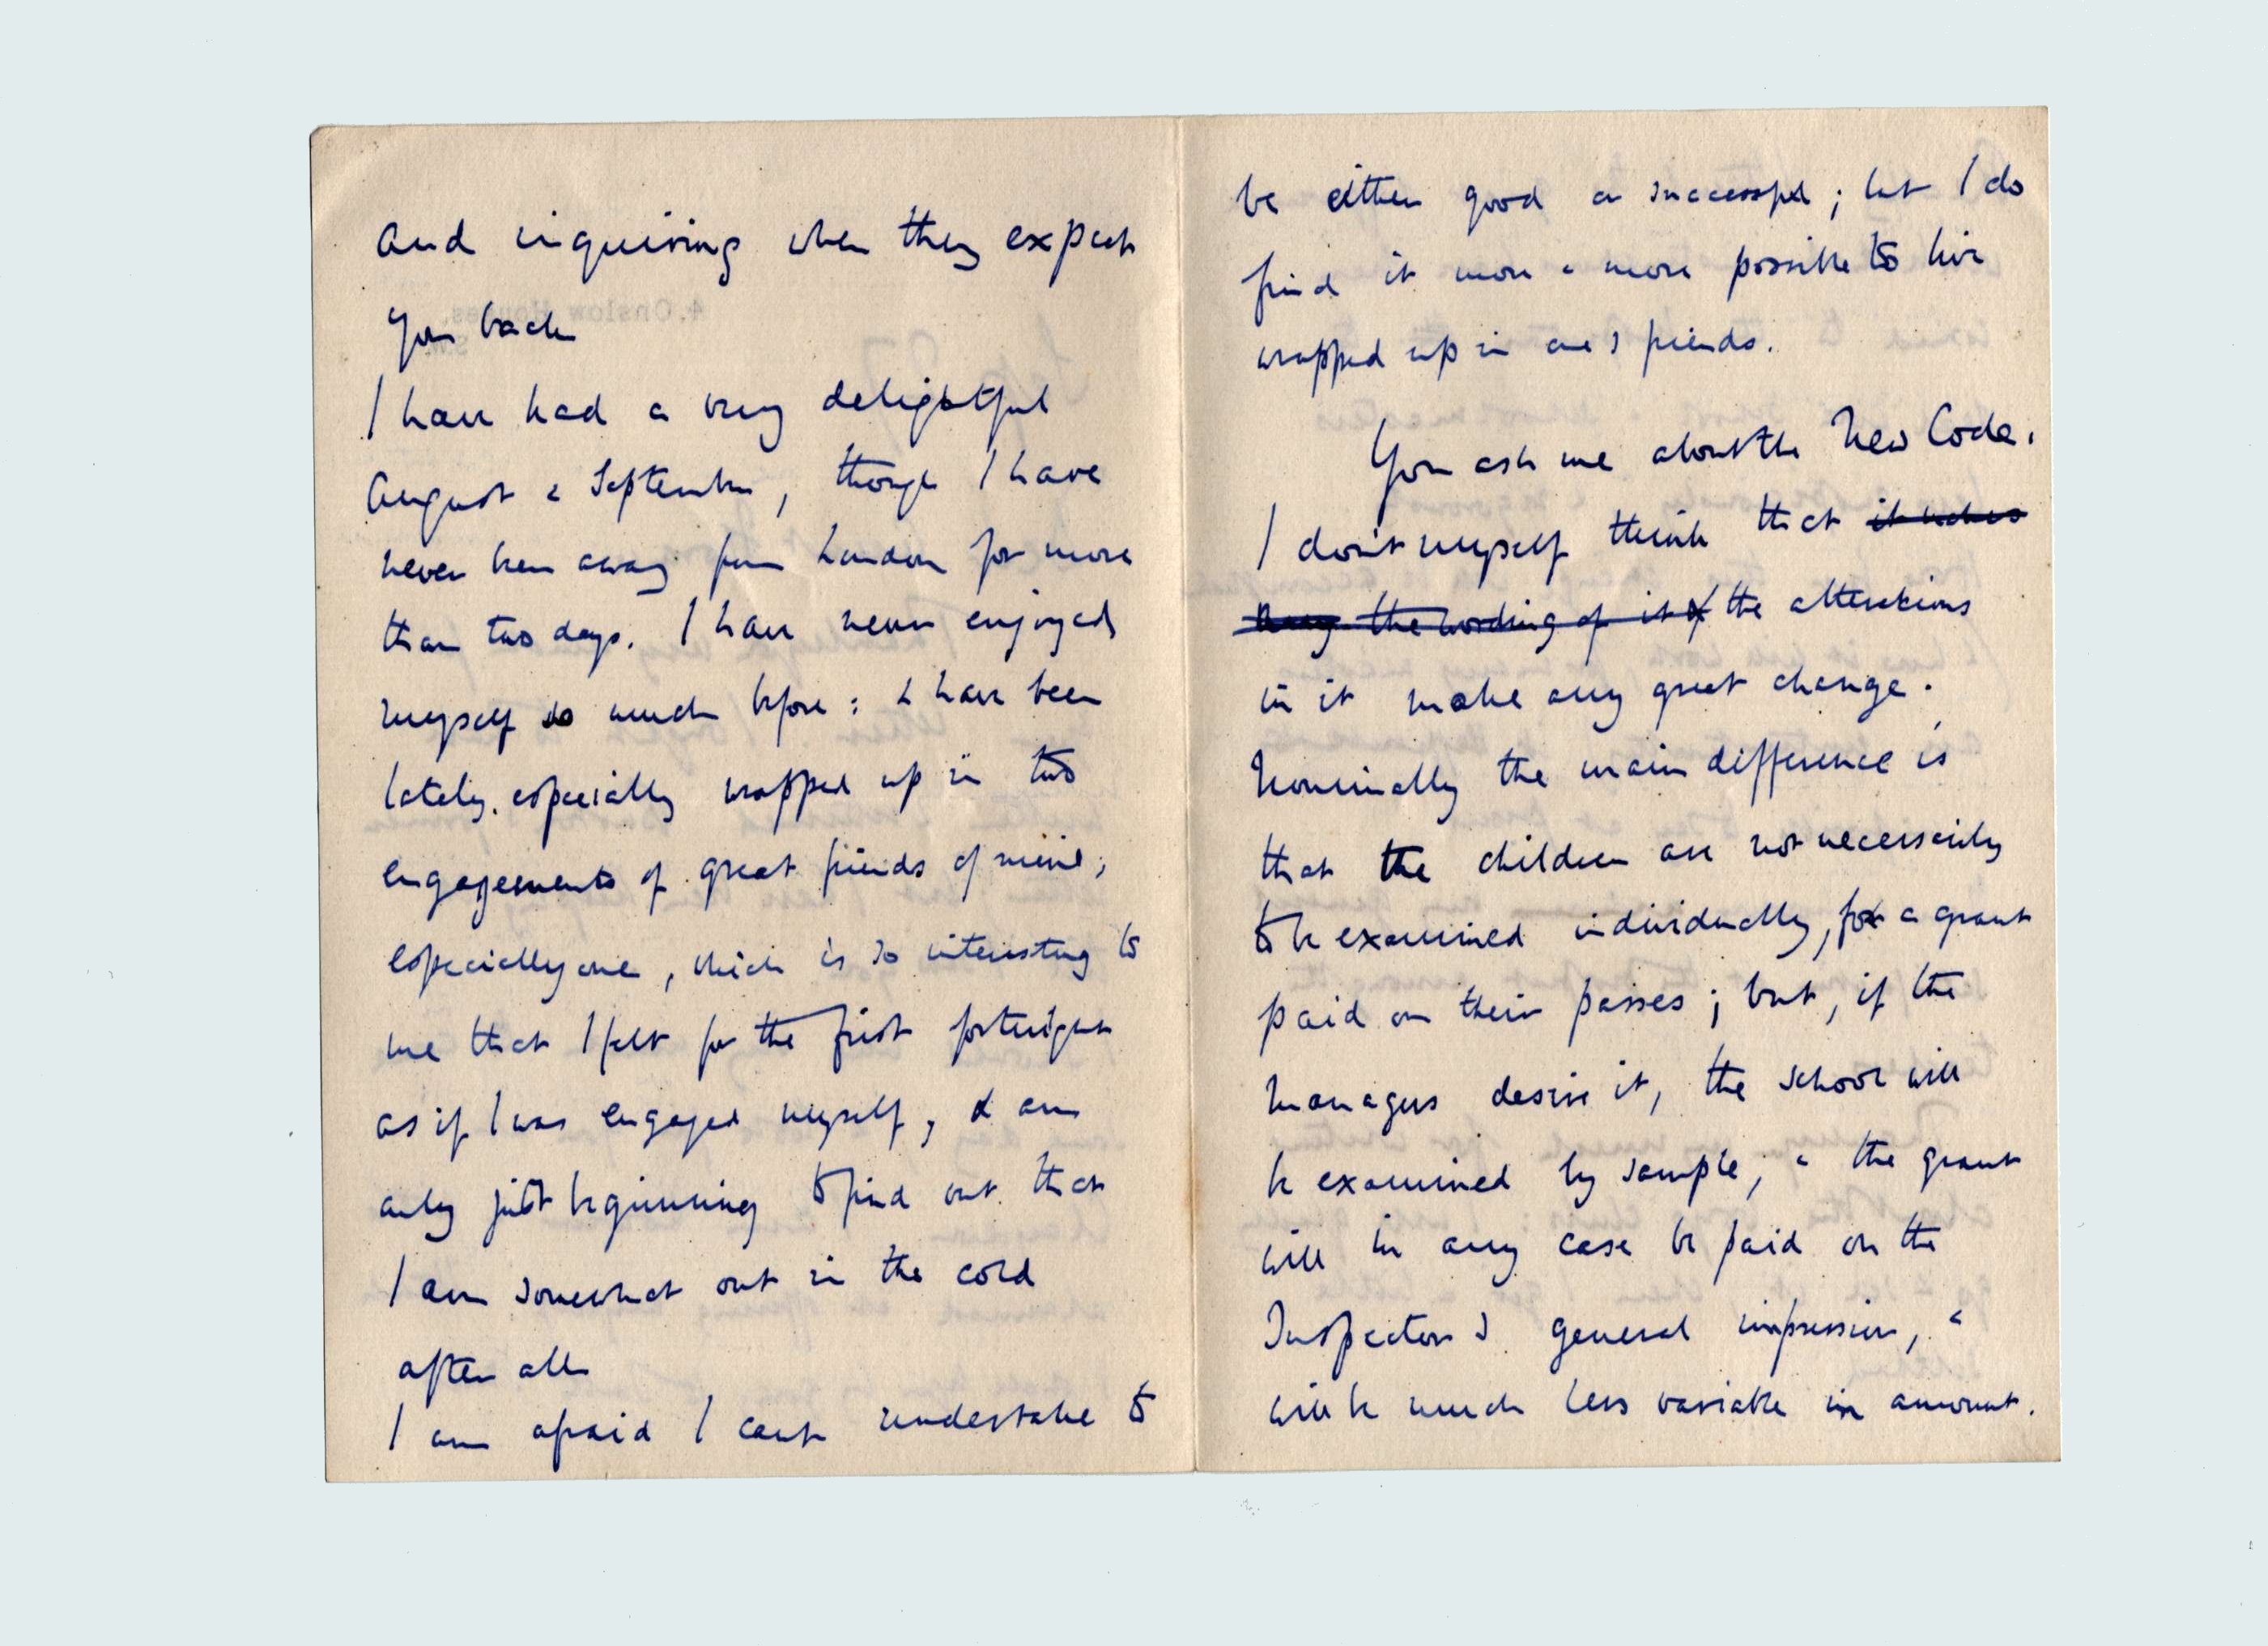 and inquiring when they expect
you back
I have had a very delightful
August & September, though I have
never been away from London for more
than two days. I have never enjoyed
myself so much before: & have been
lately, especially wrapped up in two
engagements of great friends of mine;
especially one, which is so interesting to
me that I felt for the first fortnight
as if I was engaged myself, & am
only just beginning to find out that
I am somewhat out in the cold
after all
I am afraid I cant undertake to
be either good or successful; but I do
find it more & more possible to live
wrapped up in one's friends.
You ask me about the New Code.
I don't myself think that it makes
the wording of it of the alterations
in it make any great change.
Nominally the main difference is
that the children are not necessarily
to be examined individually, for a grant
paid on their passes; but, if the
managers desire it, the school will
be examined by sample, & the grant
will in any case be paid on the
Inspector's general impression, &
will be much less variable in amount.
4. Onslow Houses,